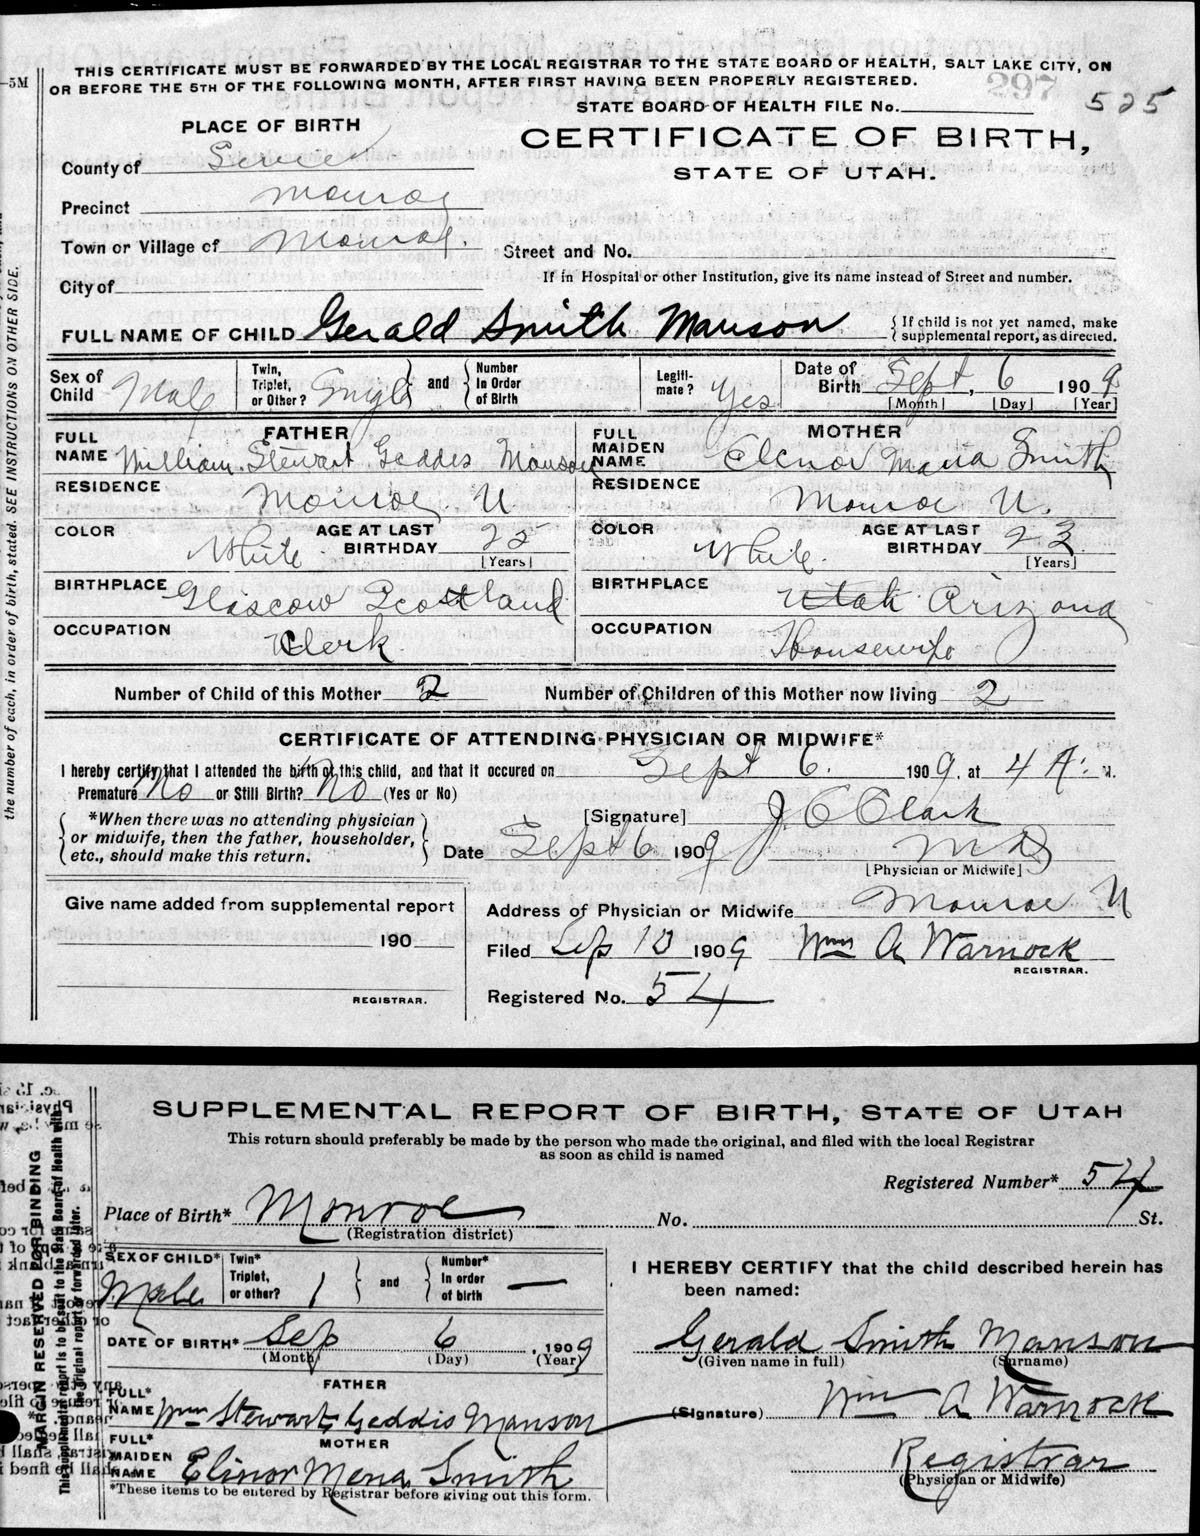 THIS CERTIFICATE MUST BE FORWARDED BY THE LOCAL REGISTRAR TO THE STATE BOARD OF HEALTH, SALT LAKE CITY, ON
OR BEFORE THE 5TH OF THE FOLLOWING MONTH, AFTER FIRST HAVING BEEN PROPERLY REGISTERED.
297
-5M
STATE BOARD OF HEALTH FILE No. 525
PLACE OF BIRTH
CERTIFICATE OF BIRTH,
STATE OF UTAH.
County of Sevier
Precinct Monroe
Town or Village of Monroe.
Street and No.
City of
If in Hospital or other Institution, give its name instead of Street and number.
FULL NAME OF CHILD Gerald Smith Manson
{If child is not yet named, make supplemental report, as directed.
Sex of Child Male
Twin, Triplet, or Other? Single } and { Number In Order of Birth
Legiti-mate? Yes
Date of Birth Sept, 6 1909
[Month] [Day] [Year]
FATHER
FULL NAME William Stewart Geddes Manson
MOTHER
FULL MAIDEN NAME Elenor Mana Smith
RESIDENCE Monroe U
RESIDENCE Monroe U.
COLOR White AGE AT LAST BIRTHDAY 25 [Years]
COLOR White. AGE AT LAST BIRTHDAY 23 [Years]
BIRTHPLACE Glascow Scottland
BIRTHPLACE Utah Arizona
OCCUPATION Clerk
OCCUPATION Housewife
Number of Child of this Mother 2 Number of Children of this Mother now living 2
CERTIFICATE OF ATTENDING PHYSICIAN OR MIDWIFE*
I hereby certify that I attended the birth of this child, and that it occured on Sept 6. 1909. at 4 A. M.
Premature No or Still Birth? No (Yes or No)
{*When there was no attending physician
or midwife, then the father, householder,
etc., should make this return.}
[Signature] J C Clark
Date Sept 6 1909 M D
[Physician or Midwife]
Give name added from supplemental report
190
REGISTRAR.
Address of Physician or Midwife Monroe U
Filed Sep 10 1909 Wm A Warnock
REGISTRAR.
Registered No. 54
the number of each, in order of birth, stated. SEE INSTRUCTIONS ON OTHER SIDE.
SUPPLEMENTAL REPORT OF BIRTH, STATE OF UTAH
This return should preferably be made by the person who made the original, and filed with the local Registrar
as soon as child is named
Registered Number* 54
Place of Birth* Monroe No. St.
(Registration district)
SEX OF CHILD* Male
Twin* Triplet, or other? 1 } and { Number* In order of birth —
DATE OF BIRTH* Sep 6 1909
(Month) (Day) (Year)
FATHER
FULL* NAME Wm Stewart Geddis Manson
MOTHER
FULL* MAIDEN NAME Elinor Mena Smith
*These items to be entered by Registrar before giving out this form.
I HEREBY CERTIFY that the child described herein has
been named:
Gerald Smith Manson
(Given name in full) (Surname)
(Signature) Wm A Warnock
Registrar
(Physician or Midwife)
MARGIN RESERVED FOR BINDING
This supplemental report is to be sent to the State Board of Health with
the original report or forwarded later.